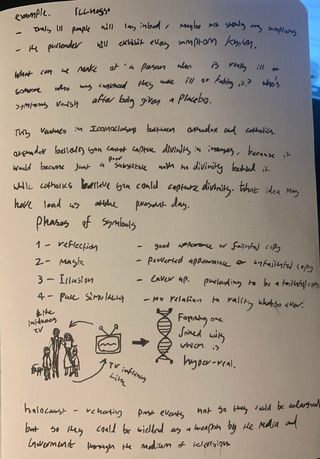 example. Illness
- Only ill people will lay in bed, maybe not showing any symptoms.
- the pretender will exhibit every symptom known.
What can we make of a person who is really ill or
someone who was convinced they were ill or faking it? who's
symptoms vanish after being given a placebo.
This in Iconoclasm between orthodox and catholics.
orthodox believing you cannot capture divinity in images, because it
would become just a poor substitute with no divinity behind it
while catholics believe you could capture divinity. this idea may
have lead us to the present day.
Phases of symbols
1 - reflection - good appearance or faithful copy
2 - mask - perverted appearance or unfaithful copy
3 - Illusion - cover up. pretending to be a faithful copy
4 - Pure simulacra - no relation to reality whatsoever.
Life influences TV
TV influences Life
Forming one
joined with
which is
hyper-real.
holocaust - recreating past events not so they could be understood
but so they could be wielded as a weapon by the media and
Government through the medium of television